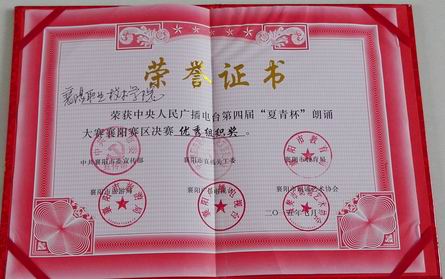 荣誉证书
襄阳职业技术学院
荣获中央人民广播电台第四届“夏青杯”朗诵
大赛襄阳赛区决赛 优秀组织奖。
中共襄阳市委宣传部 襄阳市直机关工委 襄阳市教育局
襄阳市 襄阳市 襄阳市朗诵艺术协会
二〇一五年七月